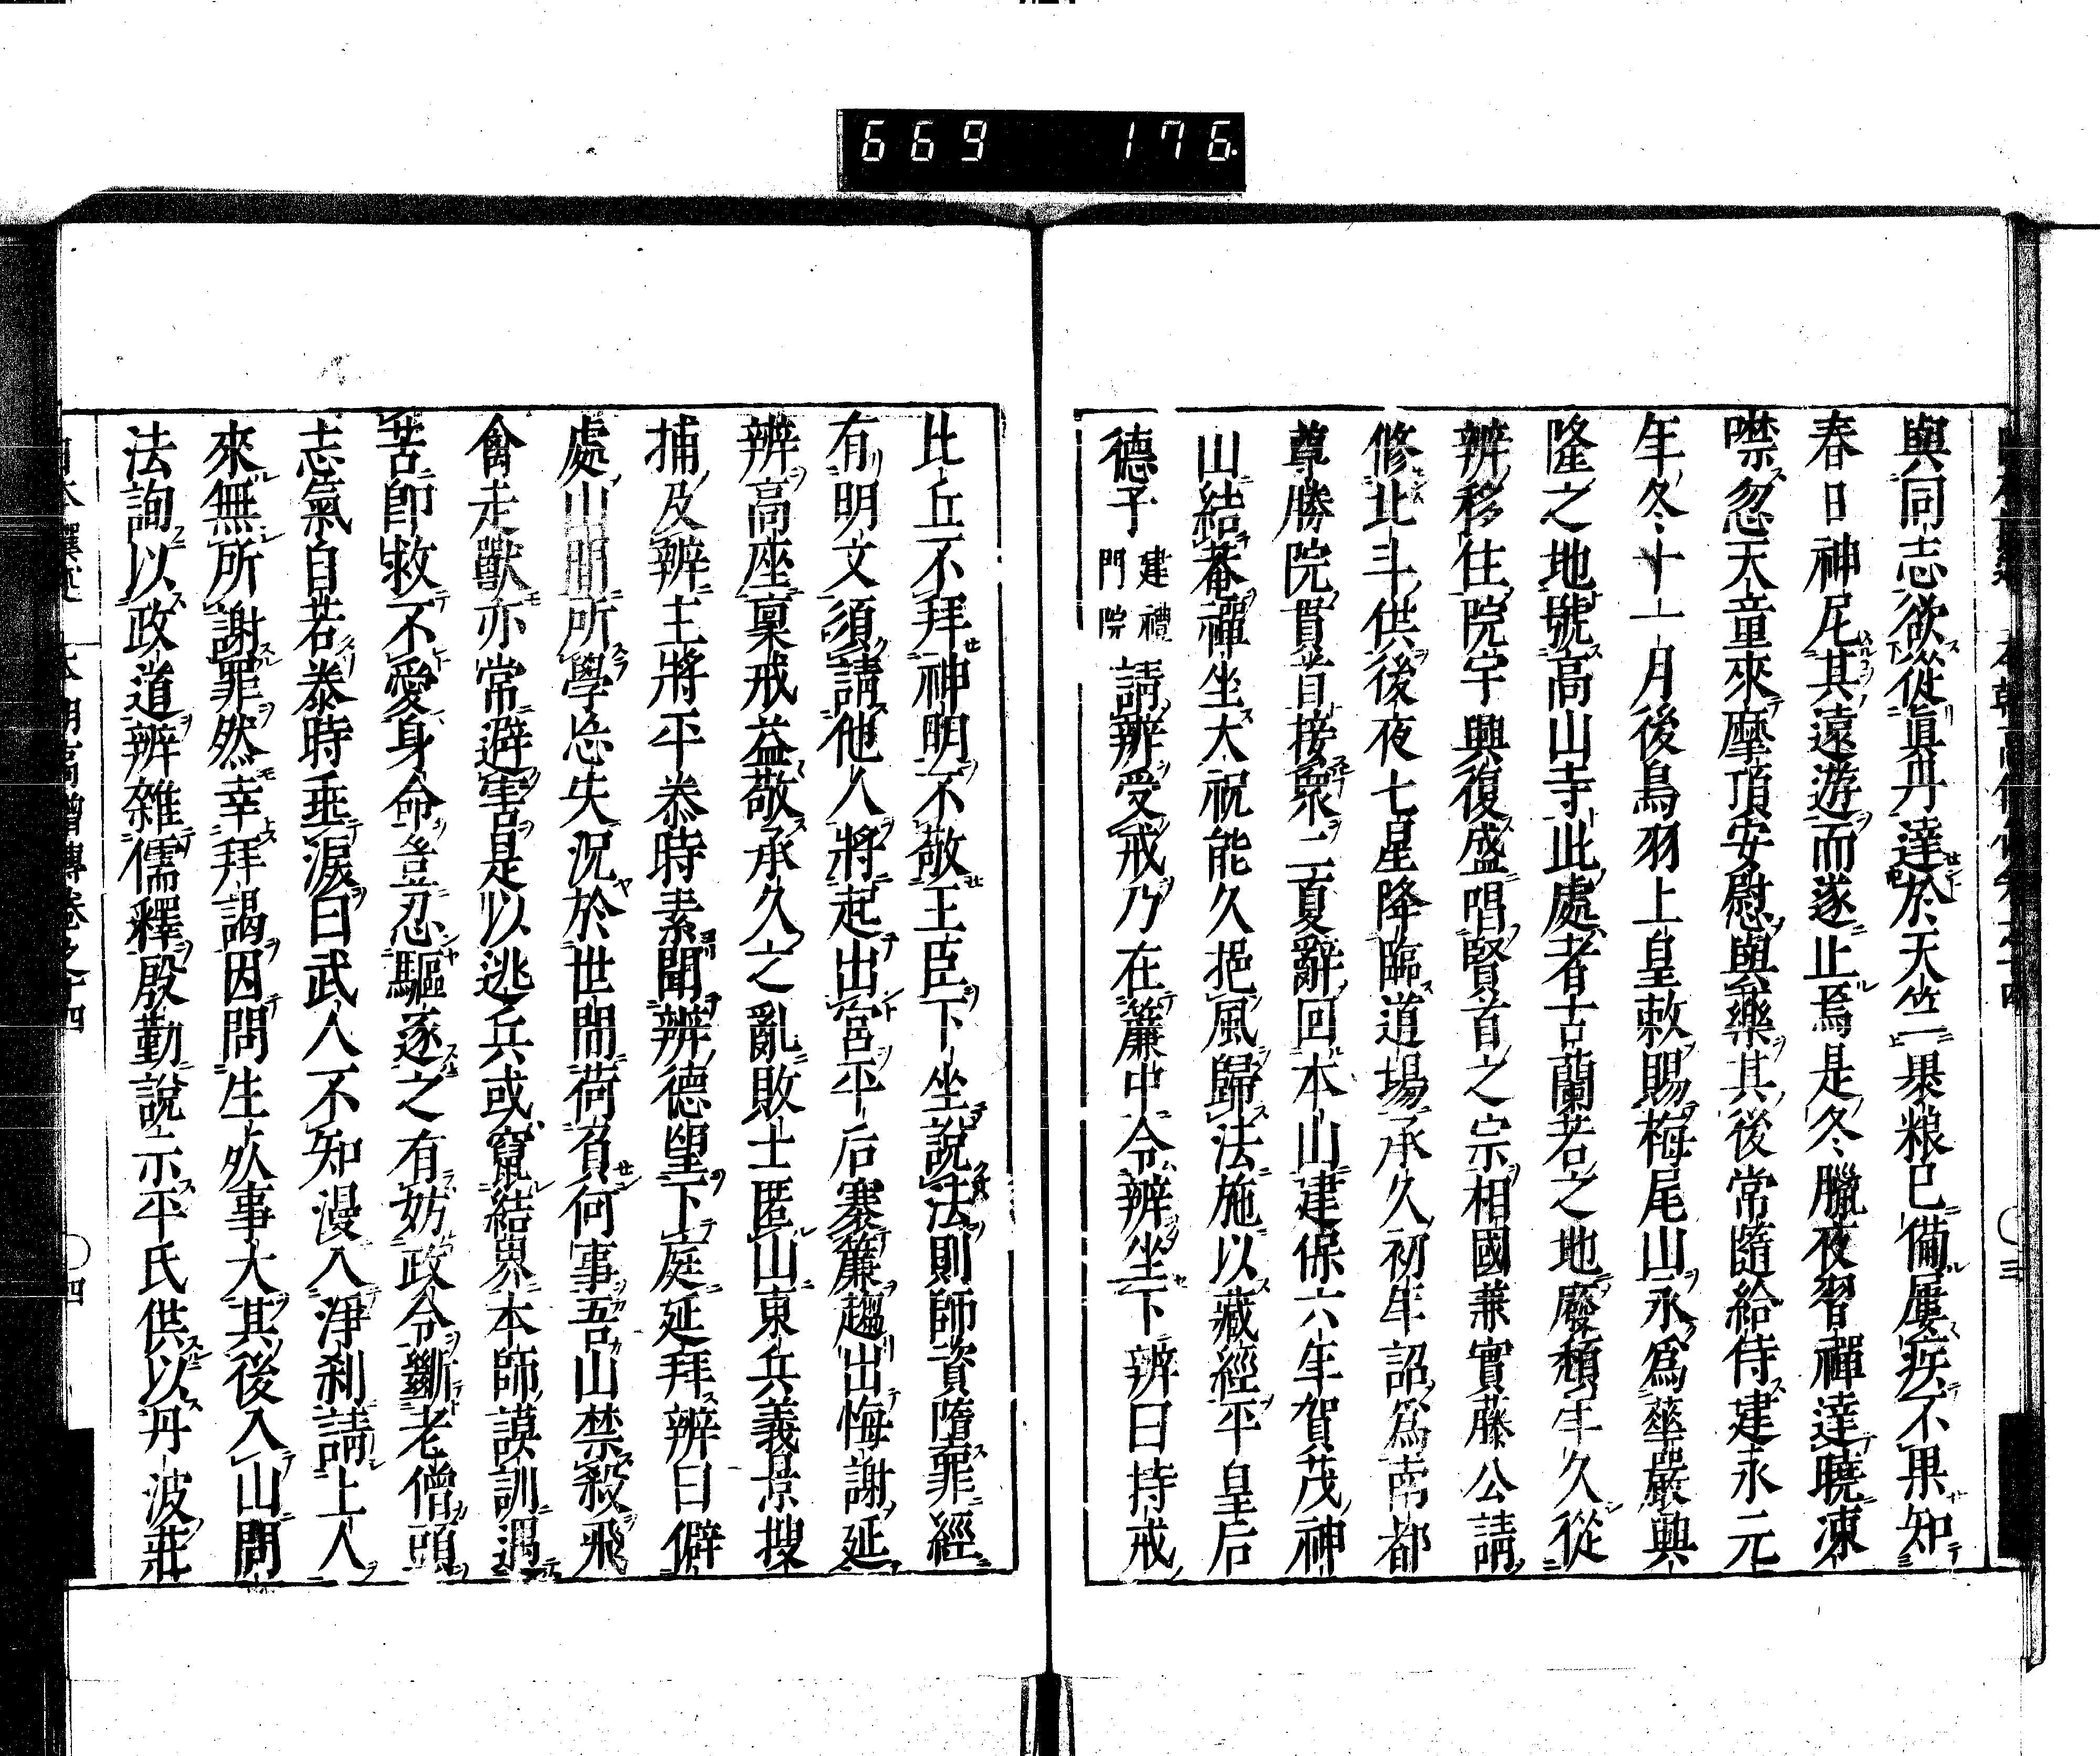 669 176
與同志欲從眞丹達於天竺裹粮已備屢疾不果知
春日神尼其遠遊而遂止焉是冬臘夜習禪達曉凍
噤忽天童來摩頂安慰與藥其後常隨給侍建永元
年冬十一月後鳥羽上皇敕賜梅尾山永爲華嚴興
隆之地號高山寺此處者古蘭若之地廢頽年久從
辨移住院宇興復盛唱賢首之宗相國兼實藤公請
修北斗供後夜七星降臨道場承久初年詔爲南都
尊勝院貫首接衆二夏辭回本山建保六年賀茂神
山結菴禪坐大祝能久挹風歸法施以藏經平皇后
德子建禮門院請辨受戒乃在簾中令辨坐下辨曰持戒
比丘不拜神明不敬王臣下坐說法則師資墮罪經
有明文須請他人將起出宮平后褰簾趨出悔謝延
辨高座稟戒益敬承久之亂敗士匿山東兵義景搜
捕及辨主將平泰時素聞辨德望下庭延拜辨曰僻
處山間所學忘失況於世間荷負何事吾山禁殺飛
禽走獸亦常避害是以逃兵或竄結界本師謨訓遇
苦卽救不愛身命豈忍驅逐之有妨政令斷老僧頭
志氣自若泰時垂淚曰武人不知漫入淨刹請上人
來無所謝罪然幸拜謁因問生死事大其後入山問
法詢以政道辨雜儒釋殷勤說示平氏供以丹波莊
本朝高僧傳卷之十四
四
三